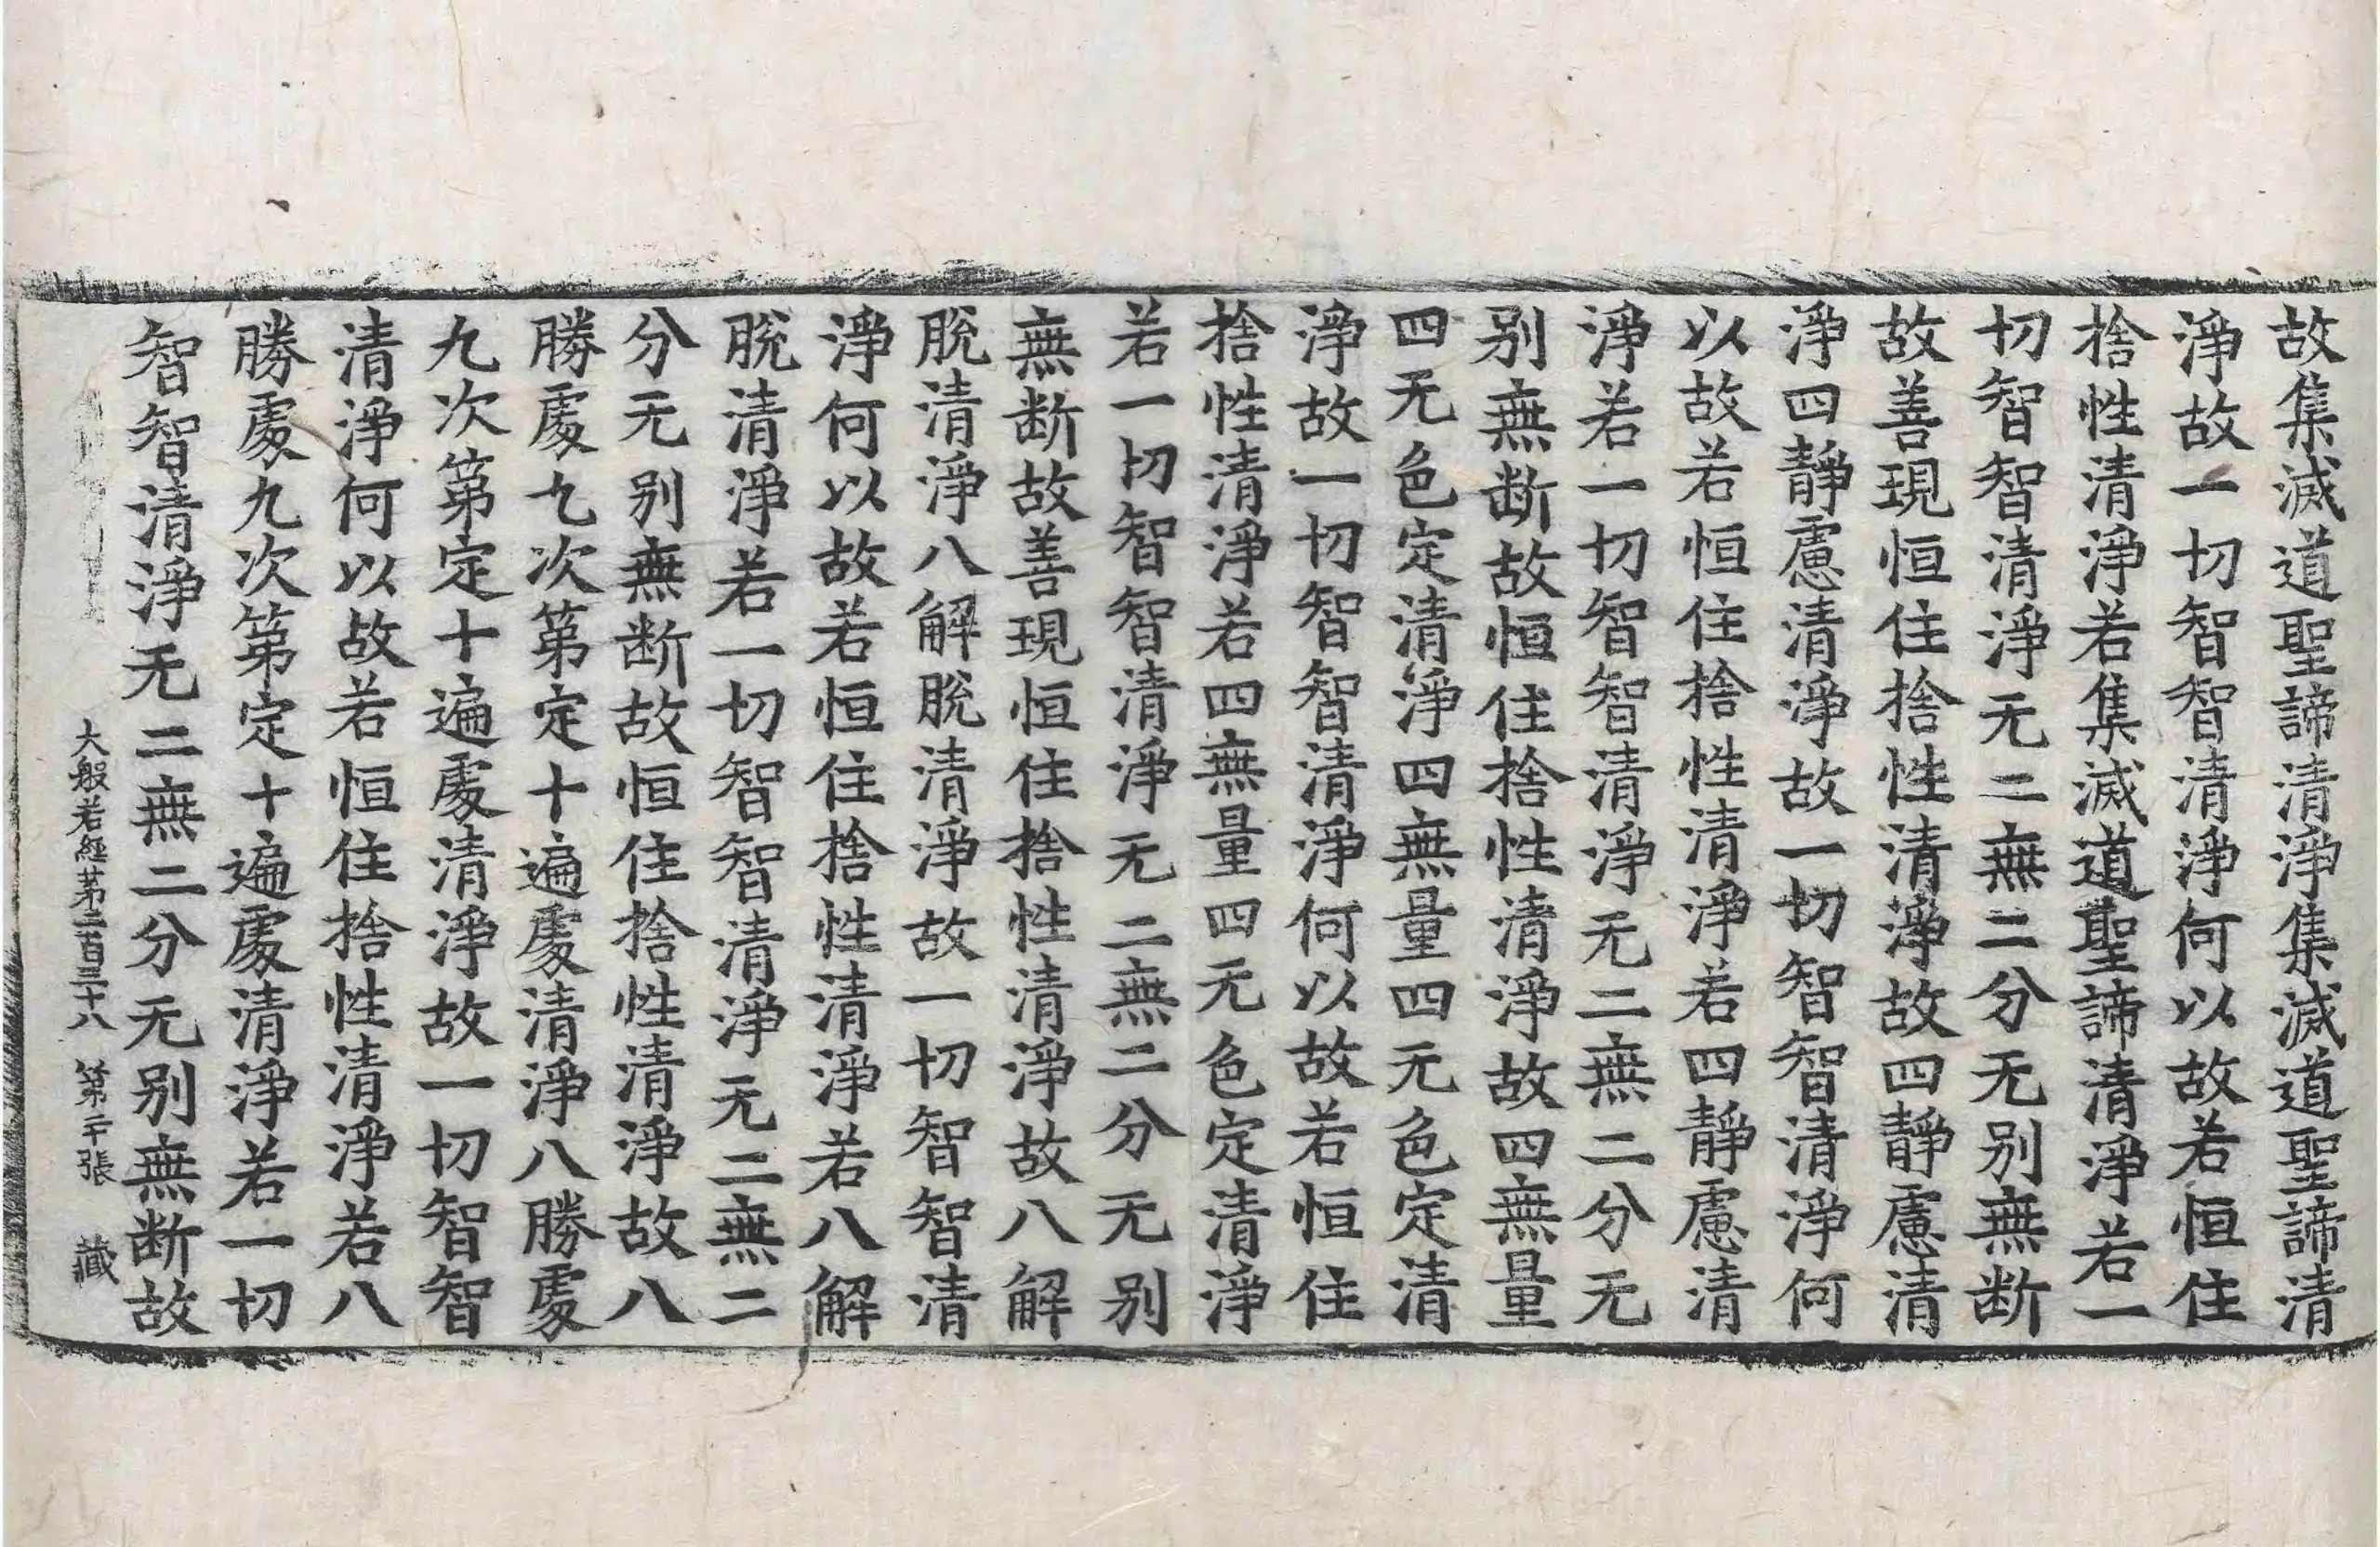 故集滅道聖諦清淨集滅道聖諦清
淨故一切智智清淨何以故若恒住
捨性清淨若集滅道聖諦清淨若一
切智智清淨无二無二分无別無断
故善現恒住捨性清淨故四靜慮清
淨四靜慮清淨故一切智智清淨何
以故若恒住捨性清淨若四靜慮清
淨若一切智智清淨无二無二分无
別無断故恒住捨性清淨故四無量
四无色定清淨四無量四无色定清
淨故一切智智清淨何以故若恒住
捨性清淨若四無量四无色定清淨
若一切智智清淨无二無二分无別
無断故善現恒住捨性清淨故八解
脫清淨八解脫清淨故一切智智清
淨何以故若恒住捨性清淨若八解
脫清淨若一切智智清淨无二無二
分无別無断故恒住捨性清淨故八
勝處九次第定十遍處清淨八勝處
九次第定十遍處清淨故一切智智
清淨何以故若恒住捨性清淨若八
勝處九次第定十遍處清淨若一切
智智清淨无二無二分无別無断故
大般若經第二百三十八 第二十張 藏